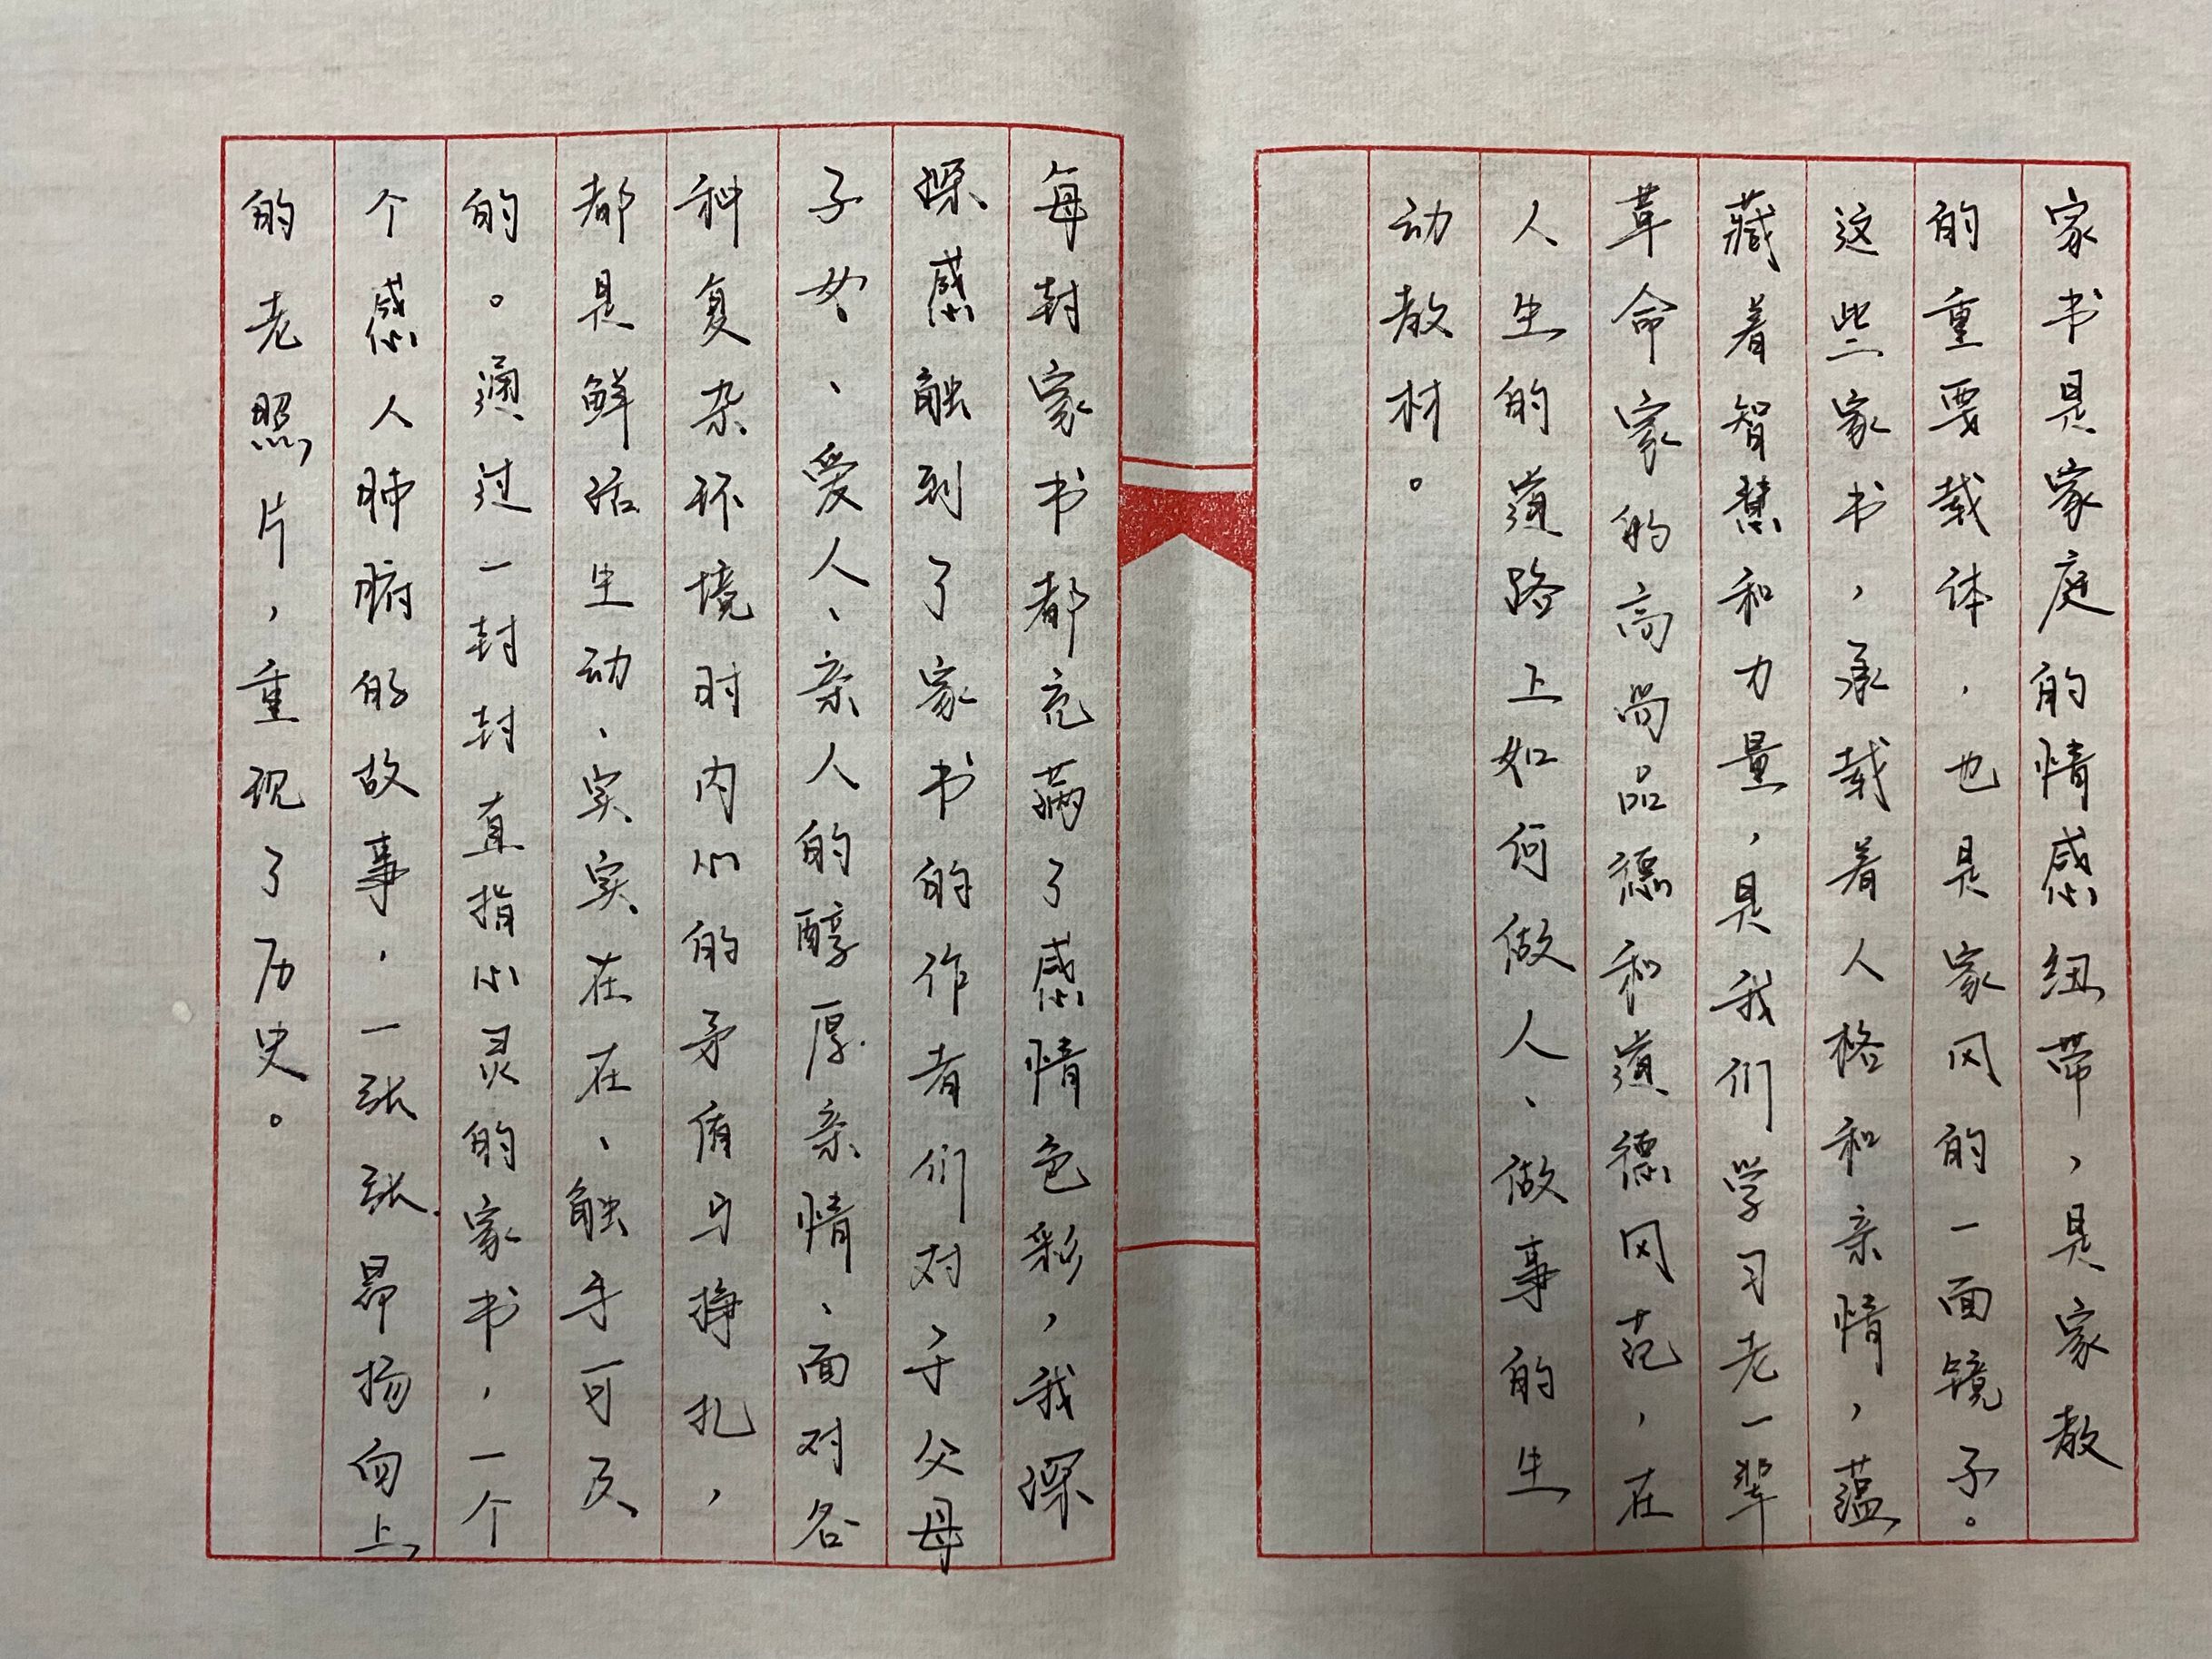 家书是家庭的情感纽带,是家教
的重要载体,也是家风的一面镜子。
这些家书,承载着人格和亲情,蕴
藏着智慧和力量,是我们学习老一辈
革命家的高尚品德和道德风范,在
人生的道路上如何做人、做事的生
动教材。
每封家书都充满了感情色彩,我深
深感触到了家书的作者们对于父母
子女、爱人、亲人的醇厚亲情、面对各
种复杂环境时内心的矛盾与挣扎,
都是鲜活生动、实实在在、触手可及
的。通过一封封直指心灵的家书,一个
个感人肺腑的故事,一张张昂扬向上
的老照片,重现了历史。